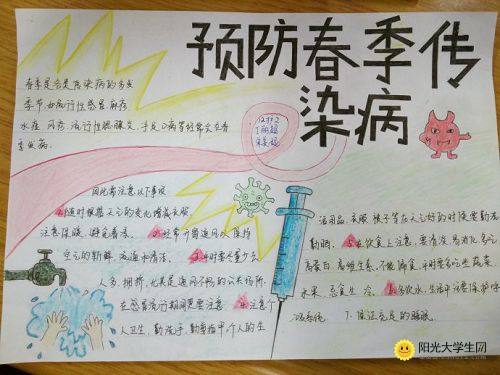 预防春季传
染病
春季是各类传染病的多发
季节,如流行性感冒、麻疹
水痘、风疹、流行性腮腺炎、手足口病等经常会在春
季发病。
因此需注意以下事项
1.随时根据天气的变化增减衣服,
注意保暖,避免着凉。2.经常开窗通风,保持
空气的新鲜,流通和清洁。3.平时要尽量少去
人多拥挤,尤其是通风不畅的公共场所,
在感冒流行期间更要注意。4.注意个
人卫生,勤洗手,勤剪指甲,个人的生
活用品、衣服、被子等在天气好的时候要勤洗
勤晒。5.在饮食上注意,要清淡,易消化,多吃
高蛋白、高维生素,不能偏食,平时要多吃些蔬菜、
水果,忌食生冷。6.多饮水,生活中注意保护呼
吸系统。7.保证充足的睡眠。
阳光大学生网